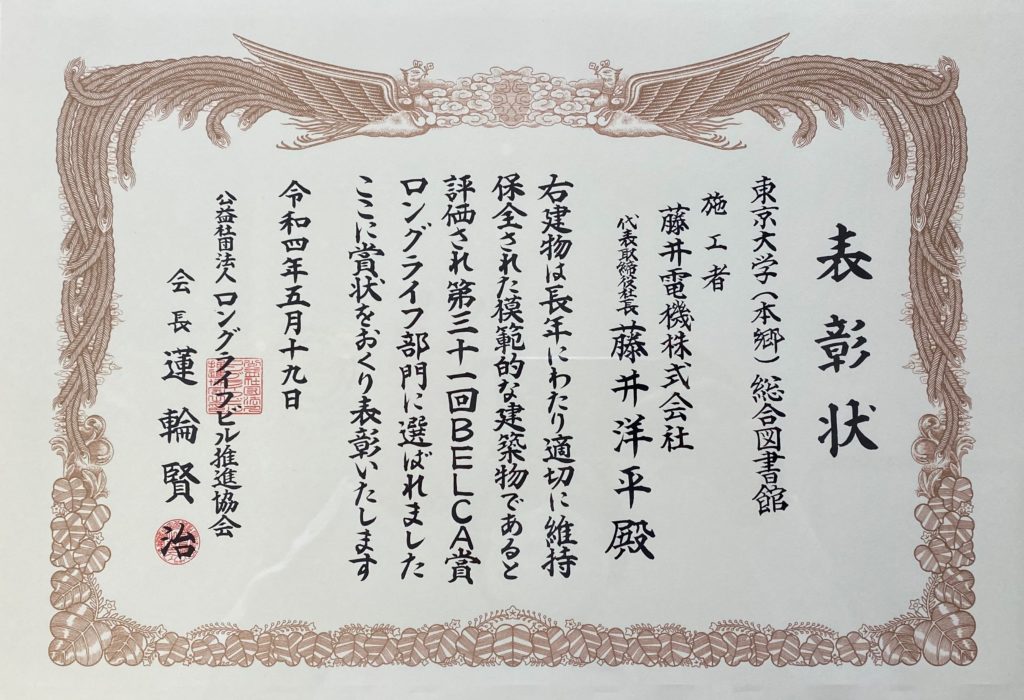 表彰状
東京大学(本郷)総合図書館
施工者
藤井電機株式会社
代表取締役社長 藤井洋平殿
右建物は長年にわたり適切に維持
保全された模範的な建築物であると
評価され第三十一回BELCA賞
ロングライフ部門に選ばれました
ここに賞状をおくり表彰いたします
令和四年五月十九日
公益社団法人ロングライフビル推進協会
会長 蓮輪賢治